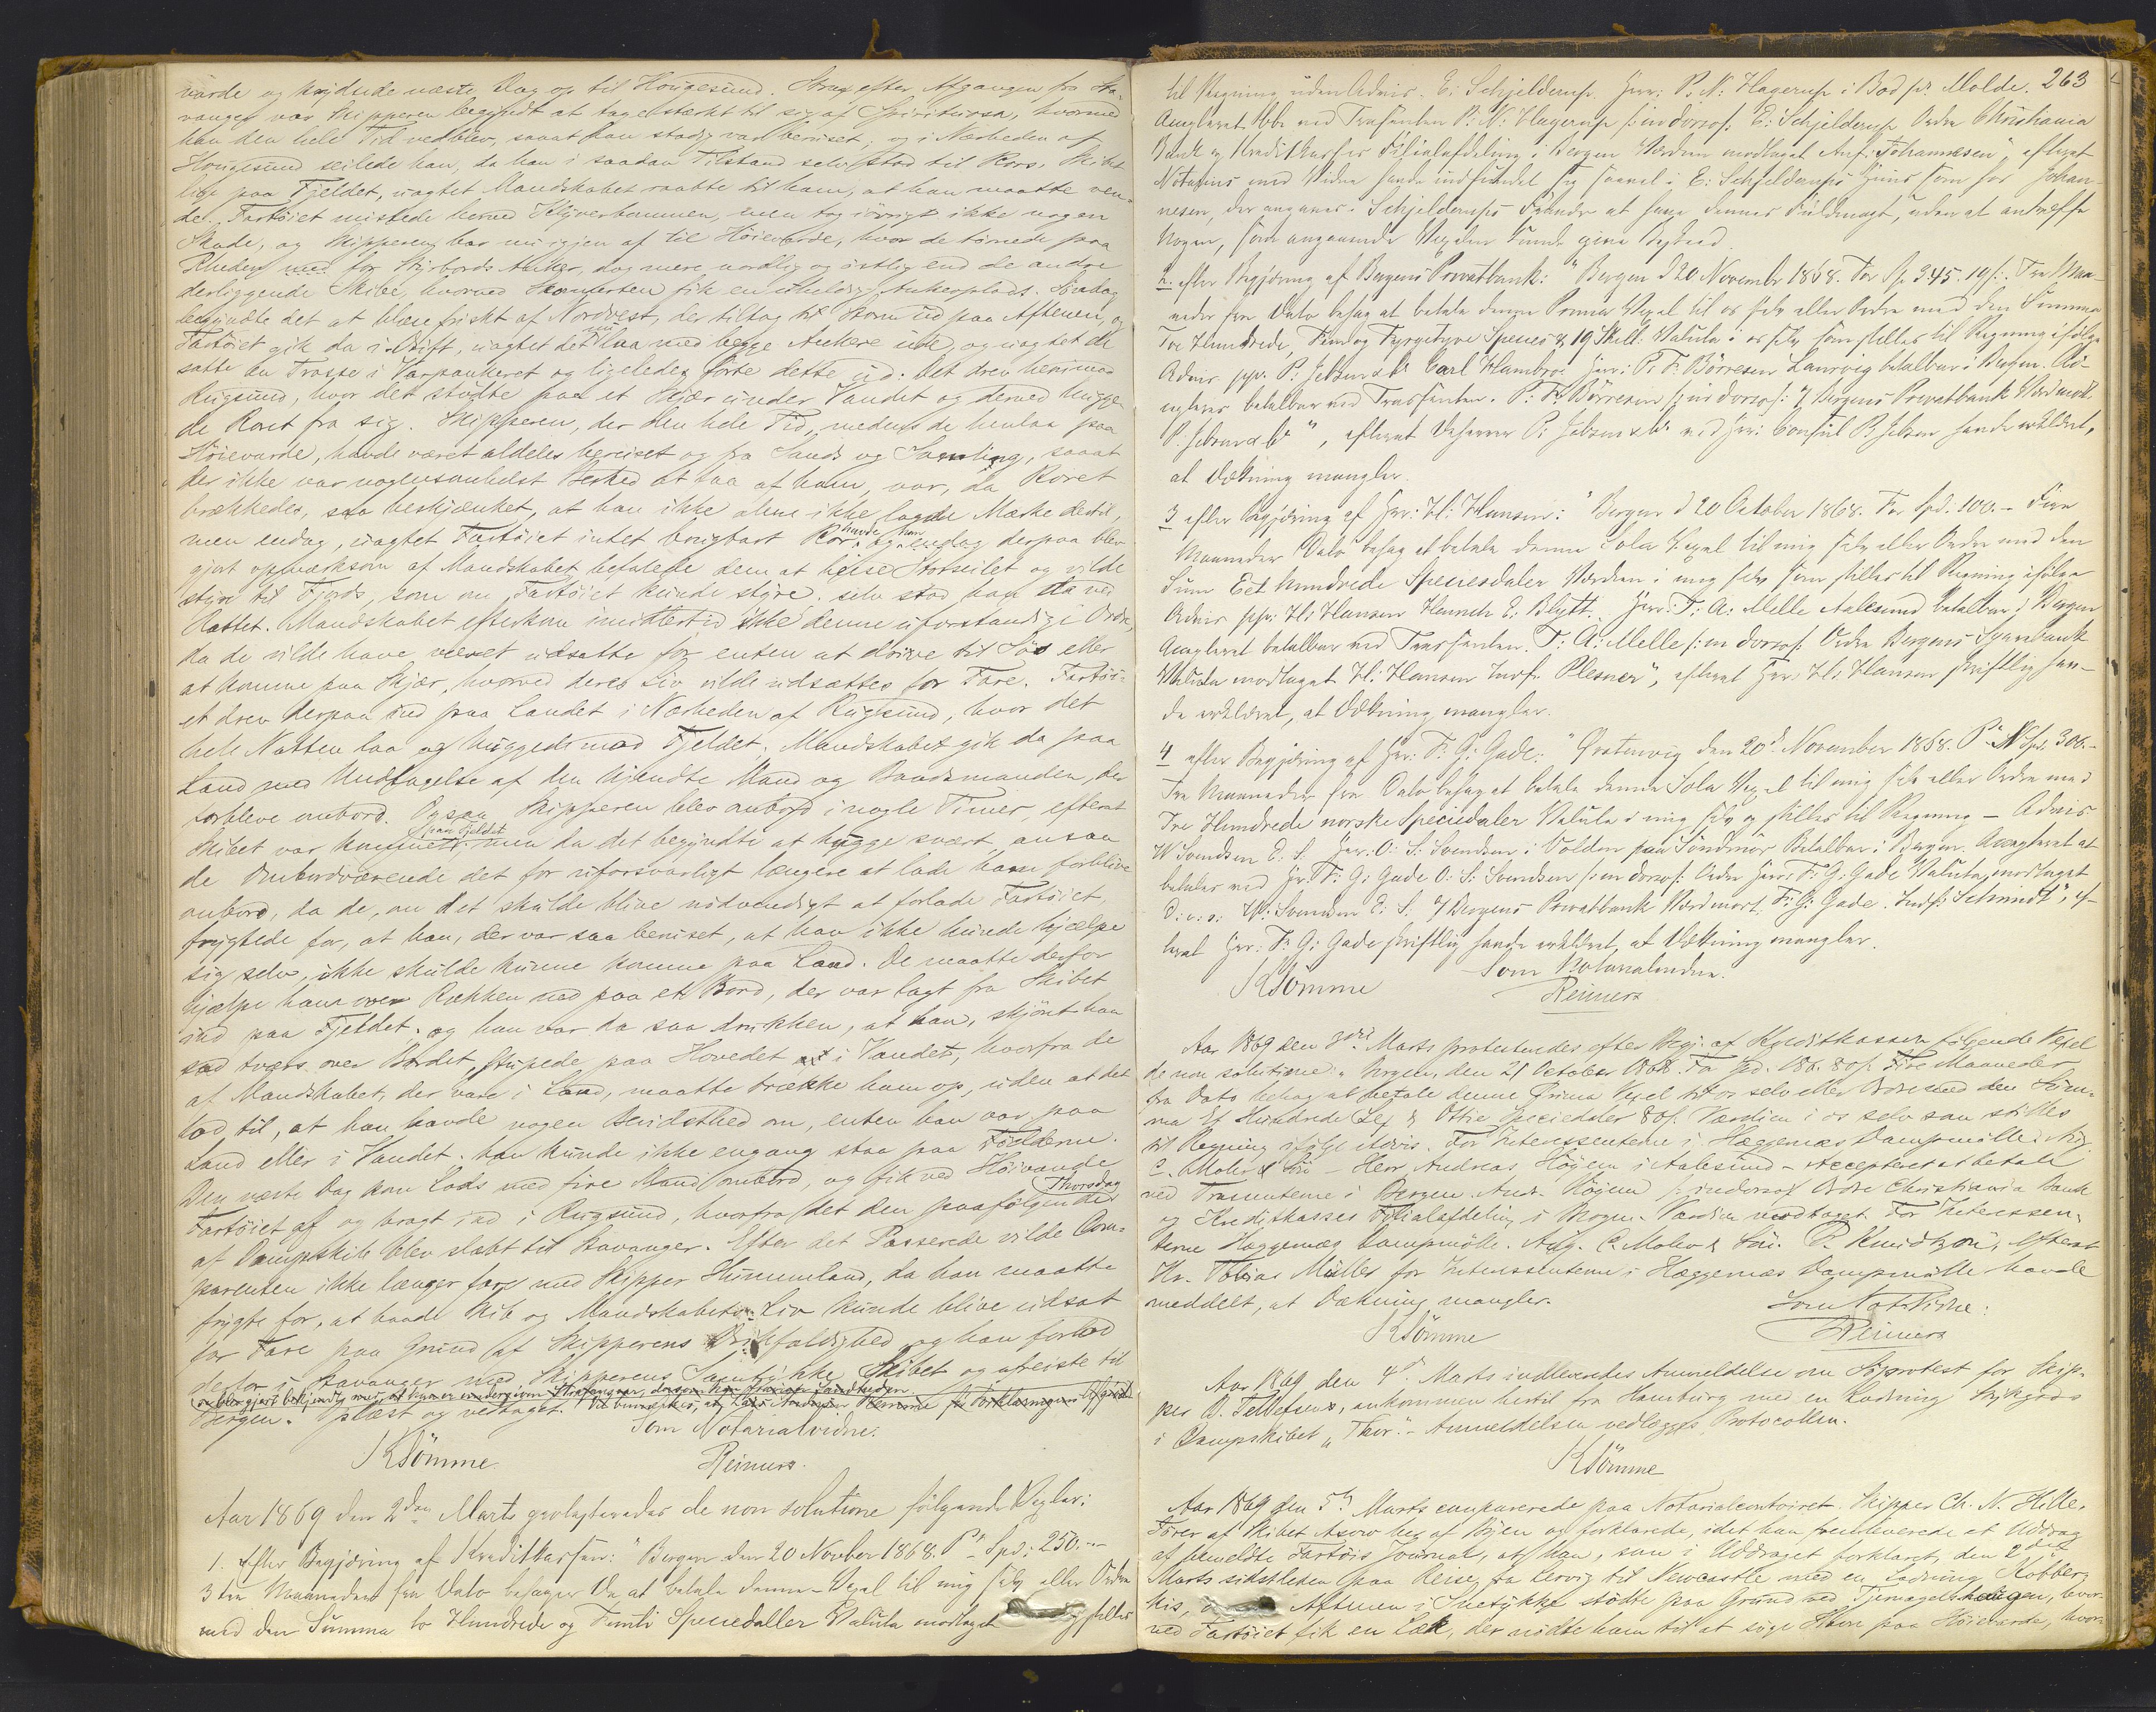 varde og krydsede næste Dag op til Hougesund. Strax efter Afgangen fra Sta-
vanger var Skipperen begyndt at tage stærkt til sig af Spirituosa, hvormed
han den hele Tid vedblev, saaat han stadig var beruset, og i Nærheden af
Hougesund seilede han, da han i saadan Tilstand selv stod til Rors, Skibet
lige paa Fjeldet, uagtet Mandskabet raabte til ham, at han maatte ven-
de. Fartöiet mistede herved Klyverbommen, men tog iövrigt ikke nogen
Skade, og Skipperen bar nu igjen af til Höievarde, hvor de törnede paa
Rheden med for Styrbords Anker, dog mere nordlig og östlig end de andre
derliggende Skibe, hvorved Skonnerten fik en uheldig Ankerplads. Söndag
begyndte det at blæse friskt af Nordvest, der tiltog til Storm ud paa Aftenen, og
Fartöiet gik da i Drift, uagtet det nu laa med begge Ankere ude, og uagtet de
satte en Trosse i Varpankeret og ligeledes förte dette ud. Det drev henimod
Rugsund, hvor det stödte paa et Skjær under Vandet og derved hugge-
de Roret fra sig. Skipperen, der den hele Tid, medens de henlaa paa
Höievarde, havde været aldeles beruset og fra Sands og Samling, saaat
der ikke var nogensomhelst Besked at faa af ham, var, da Roret
brækkedes, saa beskjænket, at han ikke alene ikke lagde Mærke dertil,
men endog, uagtet Fartöiet intet brugbart Ror havde, og han endog derpaa blev
gjort opmærksom af Mandskabet befalede dem at heise Storseilet og vilde
styre til Fjords, som om Fartöiet kunde styre. selv stod han da ved
Rattet. Mandskabet efterkom imidlertid ikke denne uforstandige Ordre,
da de vilde have været udsatte for enten at drive til Söes eller
at komme paa Skjær, hvorved deres Liv vilde udsættes for Fare. Fartöi-
et drev derpaa ind paa Landet i Nærheden af Rugsund, hvor det
hele Natten laa og huggede mod Fjeldet. Mandskabet gik da paa
Land med Undtagelse af den kjendte Mand og Baadsmanden, der
forbleve ombord. Ogsaa Skipperen blev ombord i nogle Timer, efterat
Skibet var kommet paa Fjeldet, men da det begyndte at hugge svært, ansaa
de Ombordværende det for uforsvarligt længere at lade ham forblive
ombord, da de, om det skulde blive nödvendigt at forlade Fartöiet,
frygtede for, at han, der var saa beruset, at han ikke kunde hjælpe
sig selv, ikke skulde kunne komme paa Land. De maatte derfor
hjælpe ham over Rækken ned paa et Bord, der var lagt fra Skibet
ind paa Fjeldet, og han var da saa drukken, at han, skjönt han
sad tværs over Bordet, stupede paa Hovedet ud i Vandet, hvorfra de
af Mandskabet, der vare i Land, maatte trække ham op, uden at det
lod til, at han havde nogen Bevidsthed om, enten han var paa
Land eller i Vandet. han kunde ikke engang staa paa Födderne.
Den næste Dag kom Lods med fire Mand ombord, og fik ved Höivande
Fartöiet af og bragt ind i Rugsund, hvorfra det den paafölgende Thorsdag
af Dampskib blev slæbt til Stavanger. Efter det Passerede vilde Com-
parenten ikke længer fare med Skipper Hummeland, da han maatte
frygte for, at baade Skib og Mandskabets Liv kunde blive udsat
for Fare paa Grund af Skipperens Drikfældighed og han forlod
derfor i Stavanger med Skipperens Samtykke Skibet og afreiste til
Bergen. Oplæst og vedtaget.
Som Notarialvidne:
KSömme Reimers.
Aar 1869 den 2den Marts protesteredes de non solutione fölgende Vexler:
1. efter Begjæring af Kreditkassen: "Bergen den 20 Novber 1868. Pr Spd: 250.-
3 tre Maaneder fra Dato behager De at betale denne Vexel til mig selv eller Ordre
med den Summa to Hundrede og Femti Speciedaller Valuta modtaget og stilles
263
til Regning uden Advis. E: Schjelderup. Herr: P. N: Hagerup i Bod pr. Molde.
Accepteret. Bbt. ved Trasenten P: N: Hagerup /: in dorso :/ E: Schjelderup Ordre Christiania
Bank og Kreditkasses Filialafdeling i Bergen Værdien modtaget Anf. Johannesen", efterat
Notarius med Vidne havde indfundet sig saavel i E: Schjelderups Huus som hos Johan-
nesen, der angaves i Schjelderups Fravær at have dennes Fuldmagt, uden at antræffe
Nogen, som angaaende Vexelen kunde give Besked.
2. efter Begjæring af Bergens Privatbank: "Bergen d 20 November 1868. For Sp. 345. 19 s. Tre Maa-
neder fra Dato behag at betale denne Prima Vexel til os selv eller Ordre med den Summa
Tre Hundrede, Fem og Fyrgetyve Species & 19 Skill: Valuta i os selv som stilles til Regning ifölge
Advis pp. P: Jebsen & Co Carl Hambro. Herr: P. F. Börresen Laurvig betalbar i Bergen. Ac-
cepteres betalbar ved Trassenten. P: F: Börresen /: in dorso :/ Bergens Privatbank Værd modt.
P. Jebsen & Co", efterat Deherrer P: Jebsen & Co ved Herr: Consul P. Jebsen havde erklæret,
at Dækning mangler.
3 efter Begjæring af Herr: H: Hansen: "Bergen d 20 October 1868. For Spd: 100.- Fire
Maaneder Dato behag at betale denne Sola Vexel til mig selv eller Ordre med den
Sum Eet hundrede Speciesdaler Værdien i mig selv som stilles til Regning ifölge
Advis pp: H: Hansen Henrich E. Blytt. Herr: T: A: Melle Aalesund betalbar i Bergen
Accepteret betalbar ved Trassenten. T: A: Melle /: in dorso :/ Ordre Bergens Sparebank
Valuta modtaget H: Hansen Indf. Plesner", efterat Herr H: Hansen skriftlig hav-
de erklæret, at Dækning mangler.
4 efter Begjæring af Herr: F. G: Gade. "Ørstenvig den 20de November 1868. Pr N Spd. 300.-
Tre Maaneder fra Dato behag at betale denne Sola Vexel til mig selv eller Ordre med
Tre Hundrede norske Speciedaler Valuta i mig selv og stilles til Regning - Advis
W Svendsen E: S: Herr: O: S: Svendsen i Volden paa Söndmör Betalbar i Bergen. Accepteret at
betales ved Hr. F: G: Gade O: S: Svendsen /: in dorso :/ Ordre Herr: F: G: Gade Valuta modtaget
W: Svendsen E: S: Bergens Privatbank Værd modt. F: G: Gade. Indf: Schmidt", ef-
terat Herr: F: G: Gade skriftlig havde erklæret, at Dækning mangler.
Som Notarialvidne.
KSömme Reimers
Aar 1869 den 3die Marts protesteredes efter Begj. af Kreditkassen fölgende Vexel
de non solutione: "Bergen, den 21 October 1868. For Spd. 186. 80 s. Fire Maaneder
fra Dato behag at betale denne Prima Vexel til os selv eller Ordre med den Sum-
ma Et Hundrede Sex & Ottie Speciedaler 80 s. Værdien i os selv som stilles
til Regning ifölge Advis. For Interessenterne i Hæggernæs Dampmölle. Aug.
C. Mohr & Sön - Herr Andreas Höjem i Aalesund - Accepteret at betale
ved Trasenterne i Bergen. Andr. Höjem /: in dorso :/ Ordre Christiania Bank
og Kreditkasses Filialafdeling i Bergen. Værdien modtaget. For Interessen-
terne Hæggernæs Dampmölle. Aug. C. Mohr & Sön. P. Knudtzon", efterat
Hr. Tobias Müller for Interessenterne i Hæggernæs Dampmölle havde
meddelt, at Dækning mangler.
Som Not. Vidne:
KSömme Reimers
Aar 1869 den 4de Marts indleveredes Anmeldelse om Söprotest for Skip-
per D. Tellefsen, ankommen hertil fra Hamburg med en Ladning Stykgods
i Dampskibet "Thor". - Anmeldelsen vedlægges Protocollen.
KSömme
Aar 1869 den 5te Marts comparerede paa Notarialcontoiret Skipper Ch. N. Hille,
Förer af Skibet af Byen og forklarede, idet han fremleverede et Uddrag
af bemeldte Fartöis Journal, at han, som i Uddraget forklaret, den 2det
Marts sidstleden paa Reise fra Lervig til Newcastle med en Ladning Kobber-
kis, Aftenen i Snetykke stödte paa Grund ved Tjernagelshougen, hvor-
ved Fartöiet fik en Læk, der nödte ham til at söge Havn paa Höievarde, hvor-